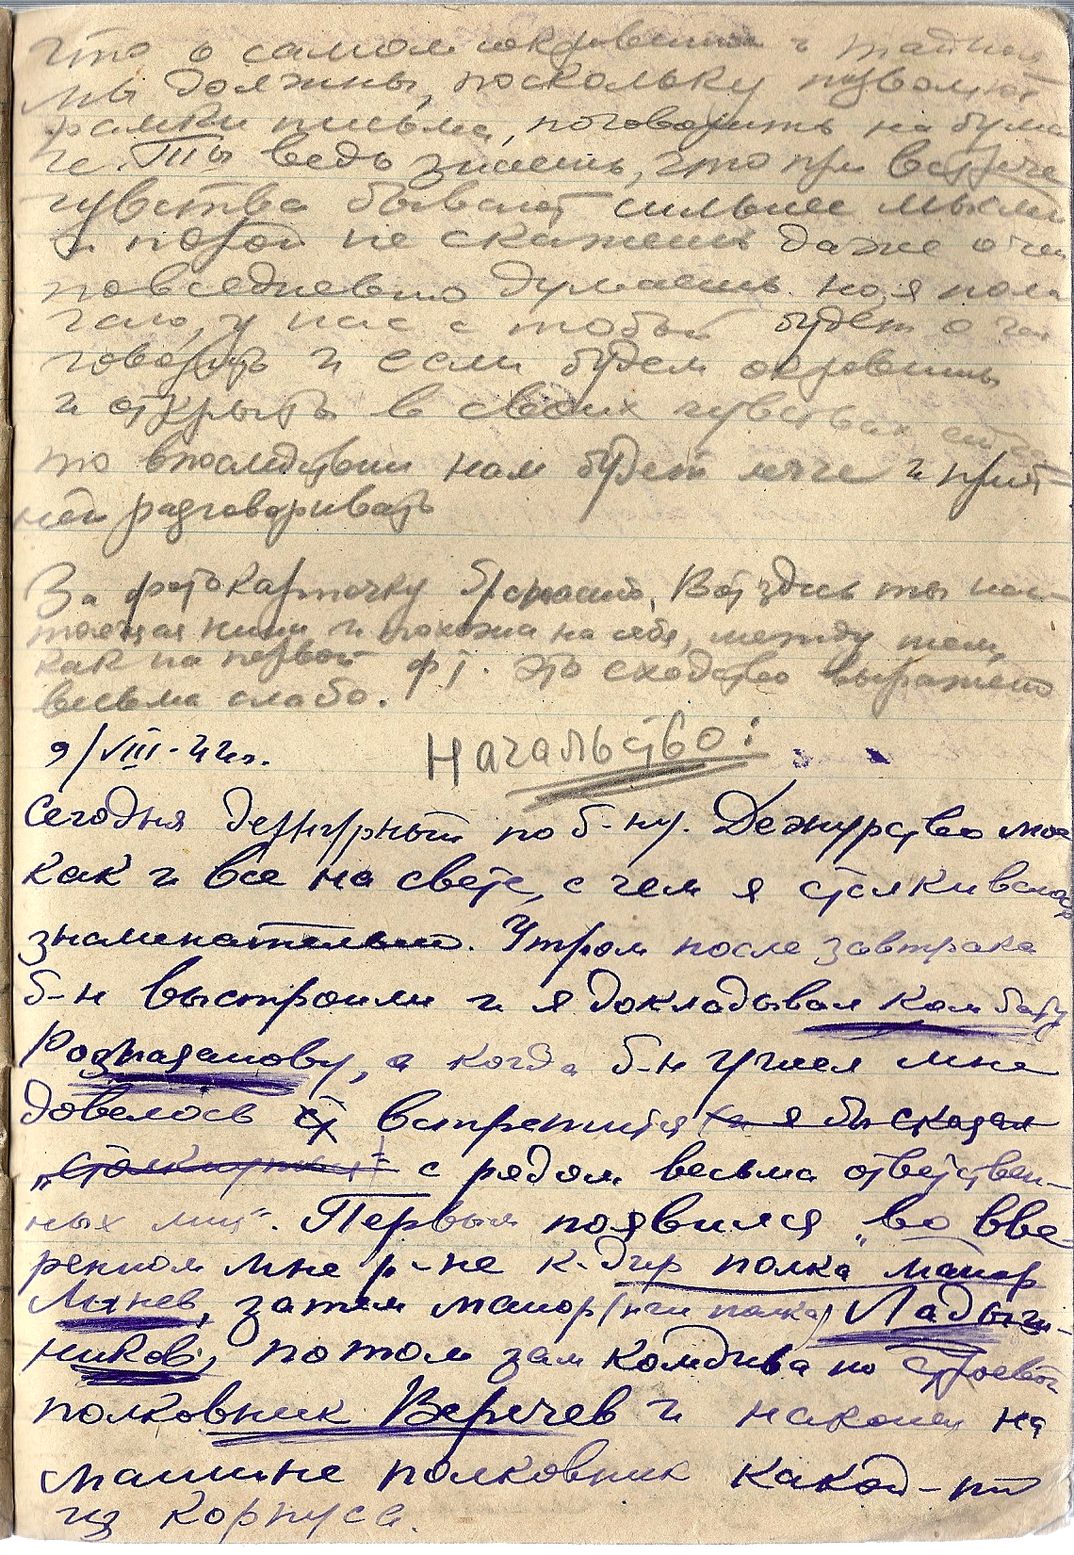 что о самом сокровенном и тайном
мы должны, поскольку позволяют
рамки письма, поговорить на бума
ге. Ты ведь знаешь, что при встрече
чувства бывают сильнее мысли
и порой не скажешь даже о чем
повседневно думаешь. но, я пола
гаю, у нас с тобой будет о чем
говорить и если будем откровенны
и открыты в своих чувствах
то впоследствии нам будет легче и прият
ней разговаривать
За фотокарточку спасибо. Вот здесь ты нас-
тоящая и похожа на себя, между тем,
как на первой ф. это сходство выражено
весьма слабо.
9/VIII-42г. Начальство:
Сегодня дежурный по б-ну. Дежурство мое
как и все на свете, с чем я сталкиваюсь
знаменательно. Утром после завтрака
б-н выстроили и я докладывал Комбату
а когда б-н ушел мне
довелось встретится (а я бы сказал
„столкнуться“ с рядом весьма ответствен-
ных лиц“. Первым появился „во вве-
ренном мне р-не к-дир полка“ майор
затем майор (нш полка) Ладыш-
ников, потом зам комдива по строевой
полковник Веричев и наконец на
машине полковник какой-то
из корпуса.